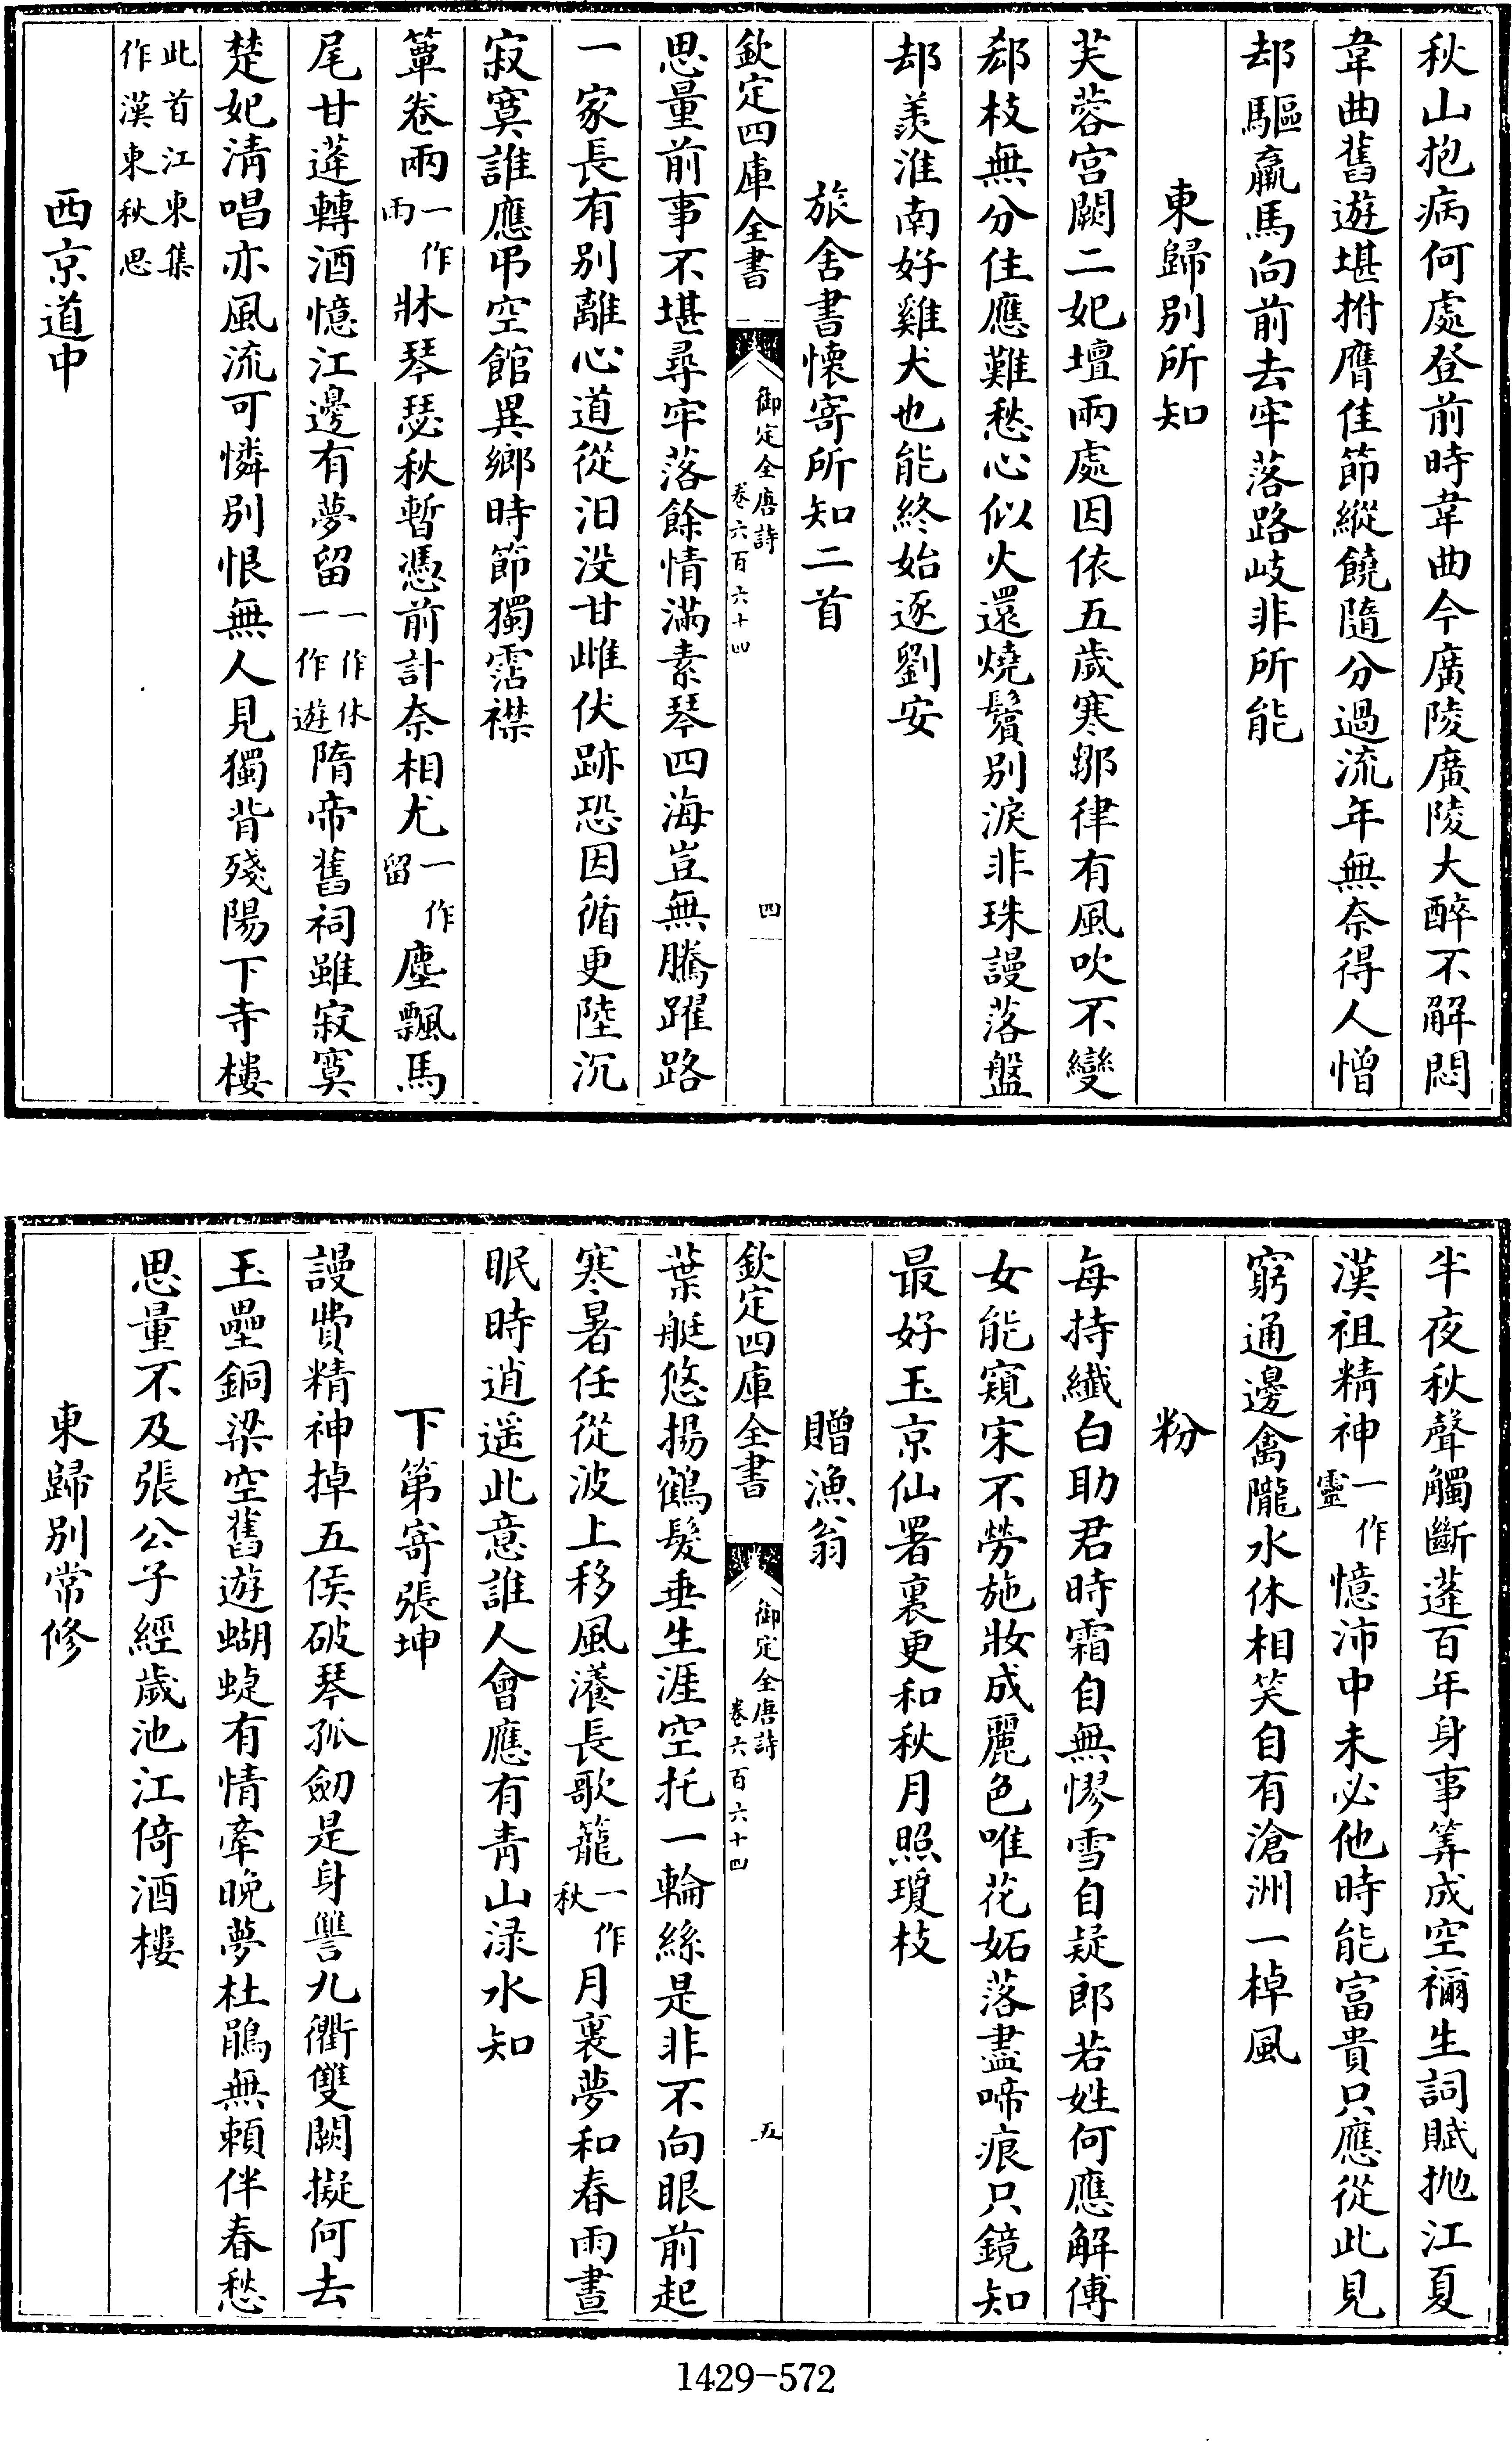 秋山抱病何處登前時韋曲今廣陵廣陵大醉不解悶
韋曲舊遊堪拊膺佳節縱饒隨分過流年無奈得人憎
却驅羸馬向前去牢落路岐非所能
東歸別所知
芙蓉宫闕二妃壇兩處因依五歲寒鄒律有風吹不變
郄枝無分住應難愁心似火還燒鬢別淚非珠謾落盤
却羨淮南好雞犬也能終始逐劉安
旅舍書懷寄所知二首
欽定四庫全書
御定全唐詩
卷六百六十四
四
思量前事不堪尋牢落餘情滿素琴四海豈無騰躍路
一家長有別離心道從汨没甘雌伏跡恐因循更陸沉
寂寞誰應弔空館異鄉時節獨霑襟
簟卷兩一作雨牀琴瑟秋暫憑前計奈相尤一作留塵飄馬
尾甘蓬轉酒憶江邊有夢留一作休一作遊隋帝舊祠雖寂寞
楚妃清唱亦風流可憐別恨無人見獨背殘陽下寺樓
此首江東集
作漢東秋思
西京道中
半夜秋聲觸斷蓬百年身事筭成空禰生詞賦抛江夏
漢祖精神一作靈憶沛中未必他時能富貴只應從此見
窮通邊禽隴水休相笑自有滄洲一棹風
粉
每持纖白助君時霜自無憀雪自疑郎若姓何應解傅
女能窺宋不勞施妝成麗色唯花妬落盡啼痕只鏡知
最好玉京仙署裏更和秋月照瓊枝
贈漁翁
欽定四庫全書
御定全唐詩
卷六百六十四
五
葉艇悠揚鶴髮垂生涯空托一輪絲是非不向眼前起
寒暑任從波上移風瀁長歌籠一作秋月裏夢和春雨晝
眠時逍遥此意誰人會應有青山渌水知
下第寄張坤
謾費精神掉五侯破琴孤劒是身讐九衢雙闕擬何去
玉壘銅梁空舊遊蝴蜨有情牽晚夢杜鵑無賴伴春愁
思量不及張公子經歲池江倚酒樓
東歸別常修
1429-572